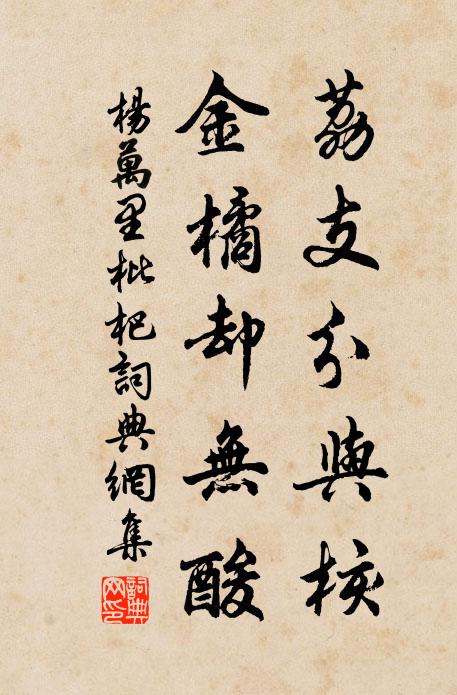 荔支分與核
金橘却無酸
楊萬里枇杷詞典網集
詞典